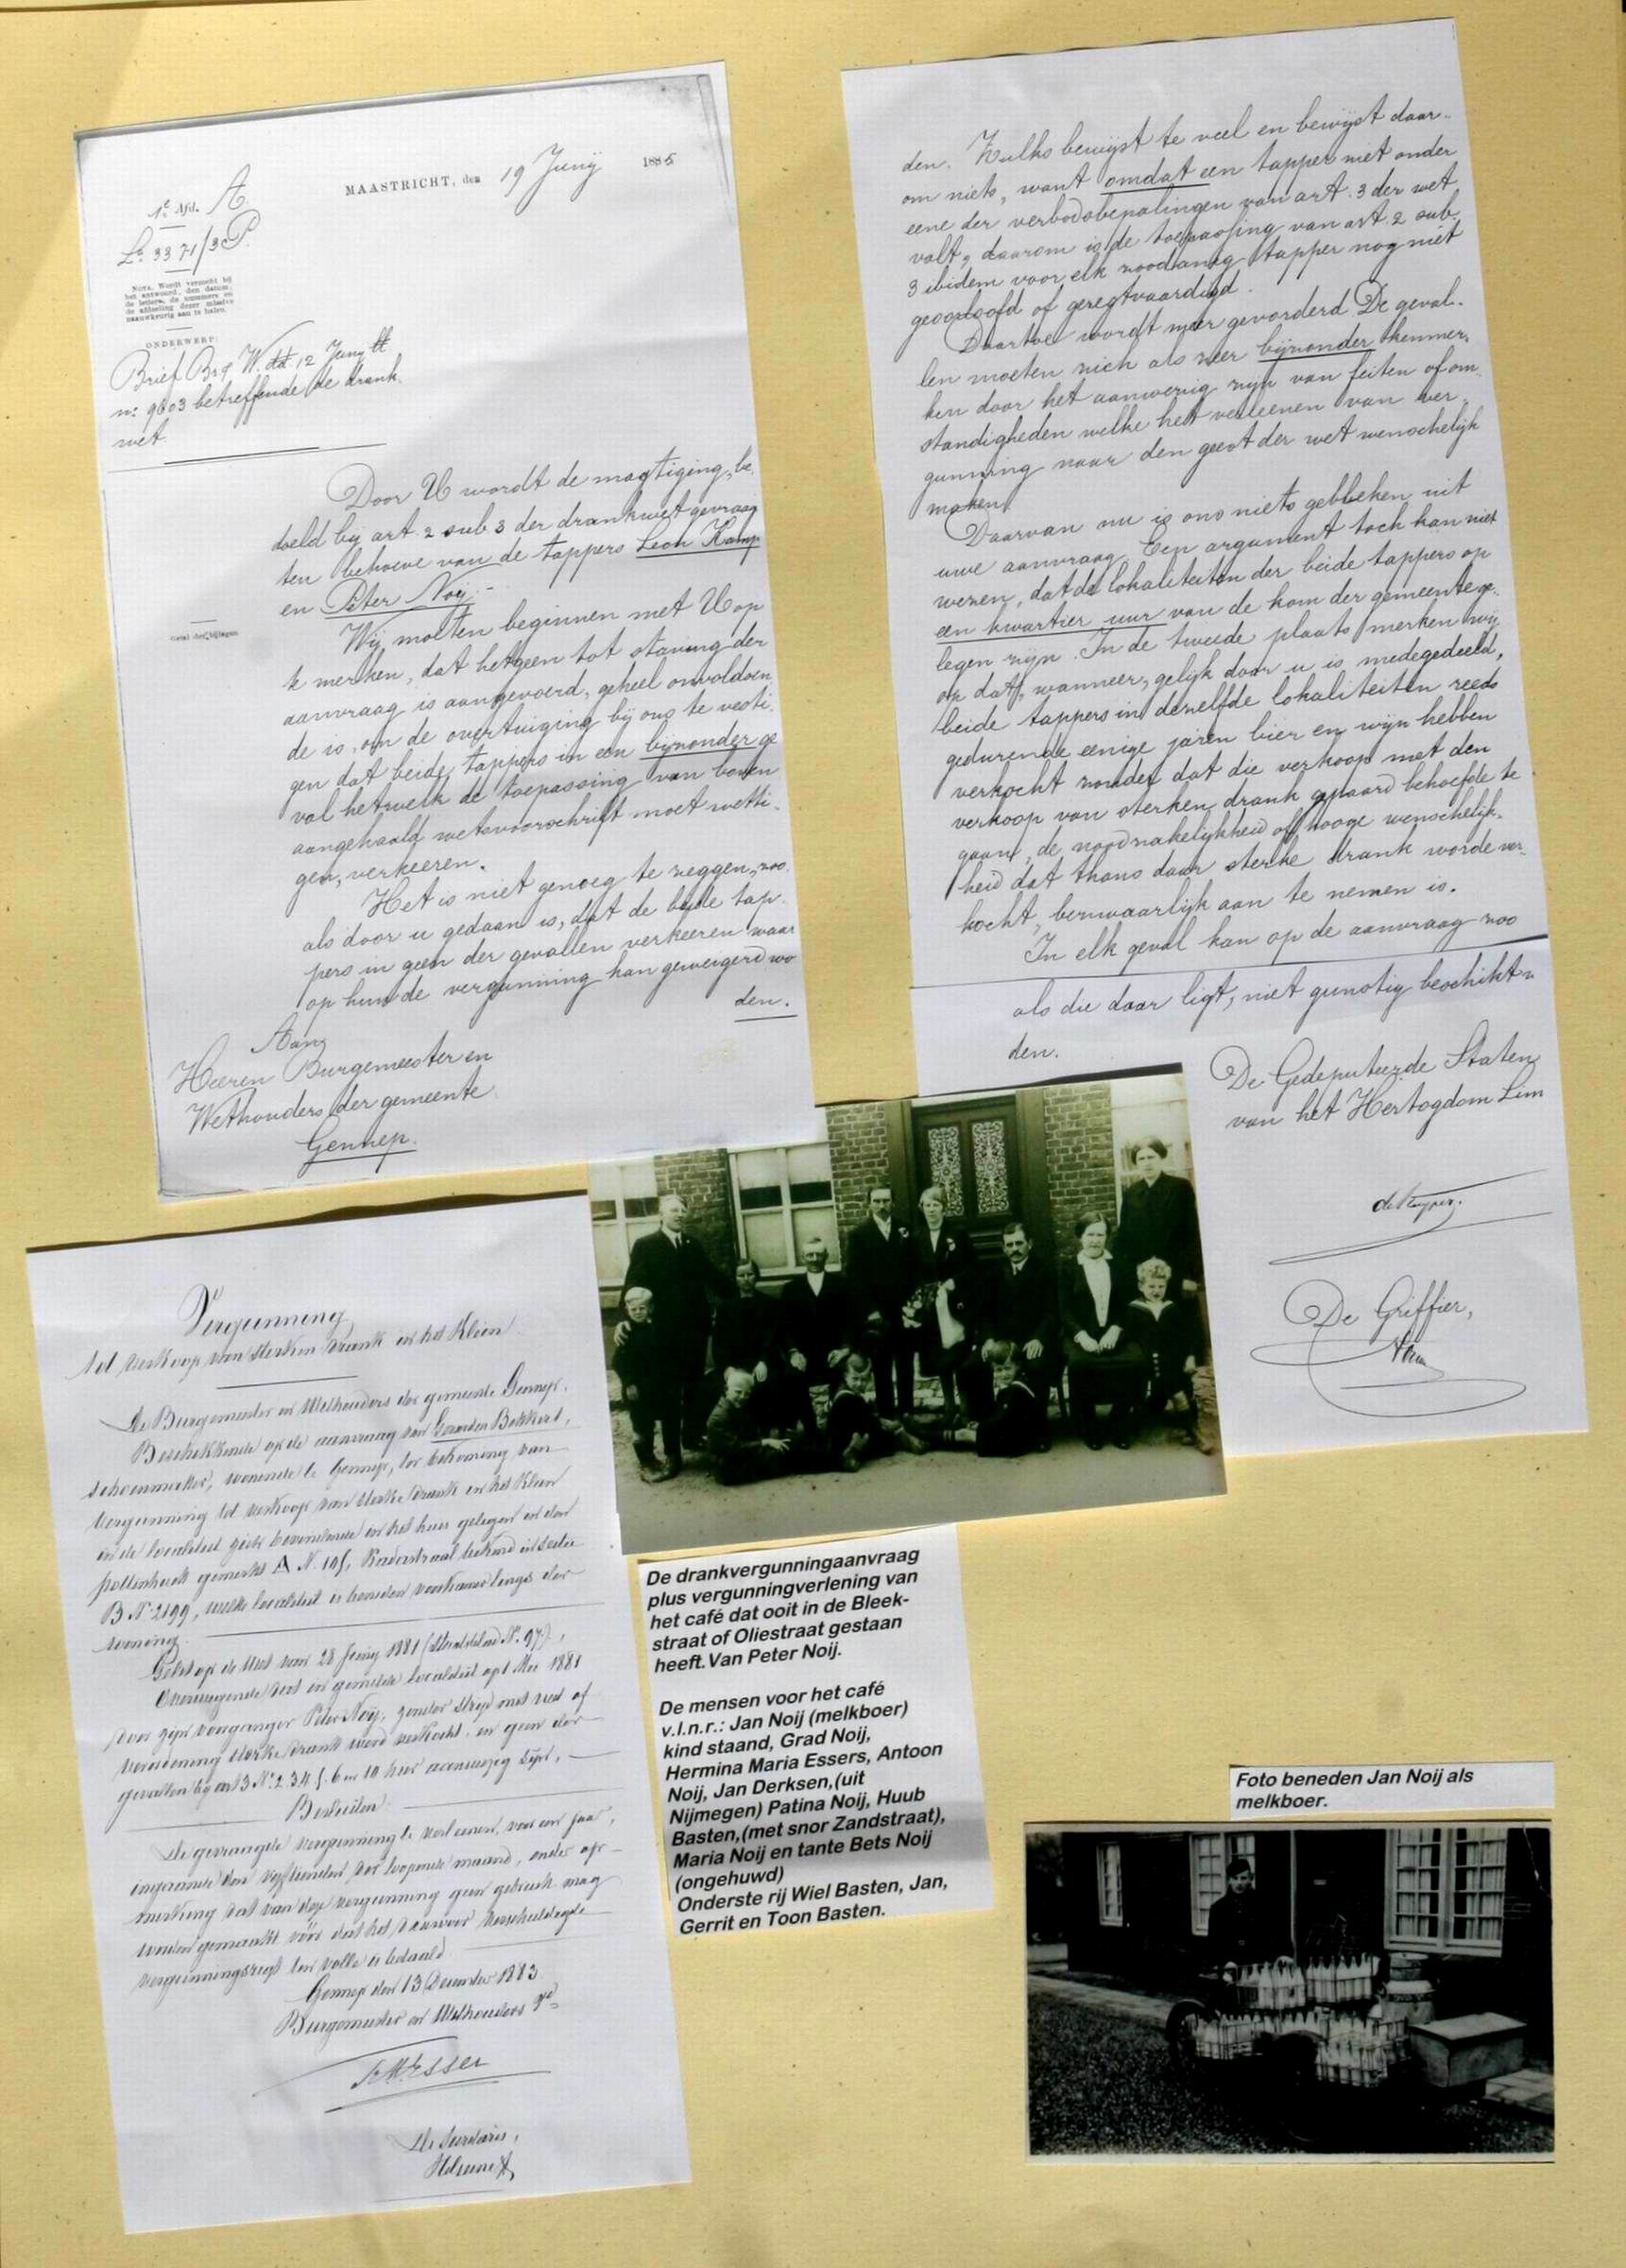 MAASTRICHT, den 19 Junij 1885
1e Afd. A.
La. 3371/3P.
NOTA. Wordt verzocht bij
het antwoord, den datum,
de letters, de nummers en
de afdeeling dezer missive
naauwkeurig aan te halen.
ONDERWERP:
Brief Brg W. dd. 12 Junij ll
no 9603 betreffende de drank
wet.
Getal der bijlagen
Door U wordt de magtiging, be
doeld bij art. 2 sub 3 der drankwet gevraag
ten behoeve van de tappers Leon Kamp
en Peter Noij.-
Wij moeten beginnen met U op
te merken, dat hetgeen tot staving der
aanvraag is aangevoerd, geheel onvoldoen
de is, om de overtuiging bij ons te vesti.
gen dat beide tappers in een bijzonder ge
val hetwelk de toepassing van boven
aangehaald wetsvoorschrift moet wetti.
gen, verkeeren.
Het is niet genoeg te zeggen, zoo.
als door u gedaan is, dat de beide tap.
pers in geen der gevallen verkeeren waar
op hun de vergunning kan geweigerd wo
den.
Aan
Heeren Burgemeester en
Wethouders der gemeente
Gennep.
den. Zulks bewijst te veel en bewijst daar-
om niets, want omdat een tapper niet onder
eene der verbodsbepalingen van art. 3 der wet
valt, daarom is de toepassing van art. 2 sub.
3 ibidem voor elk zoodanig tapper nog niet
geoorloofd of geregtvaardigd.
Daartoe wordt meer gevorderd. De geval.
len moeten zich als zeer bijzonder kenmer.
ken door het aanwezig zijn van feiten of om.
standigheden welke het verleenen van ver.
gunning naar den geest der wet wenschelijk
maken.
Daarvan nu is ons niets gebleken uit
uwe aanvraag. Een argument toch kan niet
wezen, dat de lokaliteiten der beide tappers op
een kwartier uur van de kom der gemeente ge.
legen zijn. In de tweede plaats merken wij
op dat, wanneer, gelijk door u is medegedeeld,
beide tappers in dezelfde lokaliteiten reeds
gedurende eenige jaren bier en wijn hebben
verkocht zonder dat die verkoop met den
verkoop van sterken drank gepaard behoefde te
gaan, de noodzakelijkheid of hooge wenschelijk.
heid dat thans daar sterke drank worde ver.
kocht, bezwaarlijk aan te nemen is.
In elk geval kan op de aanvraag zoo
als die daar ligt, niet gunstig beschikt
den.
De Gedeputeerde Staten
van het Hertogdom Lim
de Kuyper.
De Griffier,
Vergunning
tot verkoop van sterken drank in het klein.
De Burgemeester en Wethouders der gemeente Gennep.
Beschikkende op de aanvraag van
schoenmaker, wonende te Gennep, ter bekoming van
vergunning tot verkoop van sterke drank in het klein
in de localiteit zich bevindende in het huis gelegen in den
gemerkt A N. 105, bekend in sectie
B No 2199, welke localiteit is beneden voorkamer langs der
woning.
Gelet op de Wet van 28 Junij 1881 (Staatsblad No. 97),
Overwegende dat in gemelde localiteit op 1 Mei 1881
door zijn voorganger Peter Noij, zonder strijd met wet of
verordening sterke drank werd verkocht en geen der
gevallen bij art 3 No 2. 3. 4. 5. 6 en 10 hier aanwezig zijn,
Besluiten:
De gevraagde vergunning te verleenen, voor een jaar,
ingaande den vijftienden der loopende maand, onder op-
merking dat van deze vergunning geen gebruik mag
worden gemaakt vóór dat het daarvoor verschuldigde
vergunningsregt ten volle is betaald.
Gennep den 13 December 1883
Burgemeester en Wethouders vd
Esser
De Secretaris,
De drankvergunningaanvraag
plus vergunningverlening van
het café dat ooit in de Bleek-
straat of Oliestraat gestaan
heeft. Van Peter Noij.
De mensen voor het café
v.l.n.r.: Jan Noij (melkboer)
kind staand, Grad Noij,
Hermina Maria Essers, Antoon
Noij, Jan Derksen,(uit
Nijmegen) Patina Noij, Huub
Basten,(met snor Zandstraat),
Maria Noij en tante Bets Noij
(ongehuwd)
Onderste rij Wiel Basten, Jan,
Gerrit en Toon Basten.
Foto beneden Jan Noij als
melkboer.